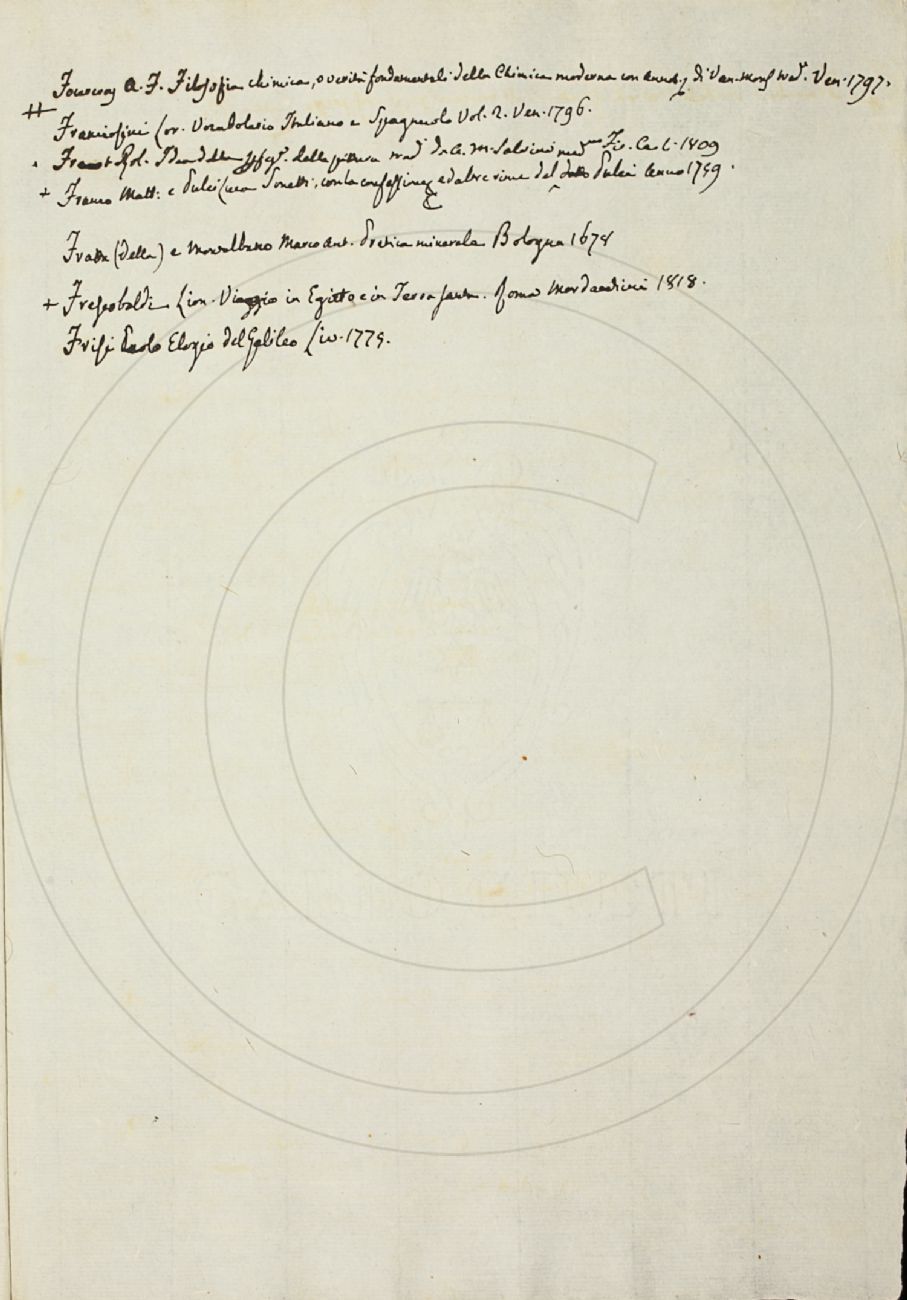 Fourcroy A. F. Filosofia chimica, o verità fondamentali della Chimica moderna con annot. di Van-Mons trad. Ven. 1797.
# Franciosini Lor. Vocabolario Italiano e Spagnuolo Vol. 2. Ven. 1796.
. Rol. Idea della della pittura trad. da A. M. Salvini Fir. Ca. 1809
+ Franco Matt: e Pulci Luca Sonetti, con la confessione ed altre rime del detto Pulci anno 1759.
Fratta (della) e Montalbano Marco Ant. Pratica minerale Bologna 1678
+ Frescobaldi Lion. Viaggio in Egitto e in Terra Santa. Roma Mordacchini 1818.
Frisi Paolo Elogio del Galileo Liv. 1775.